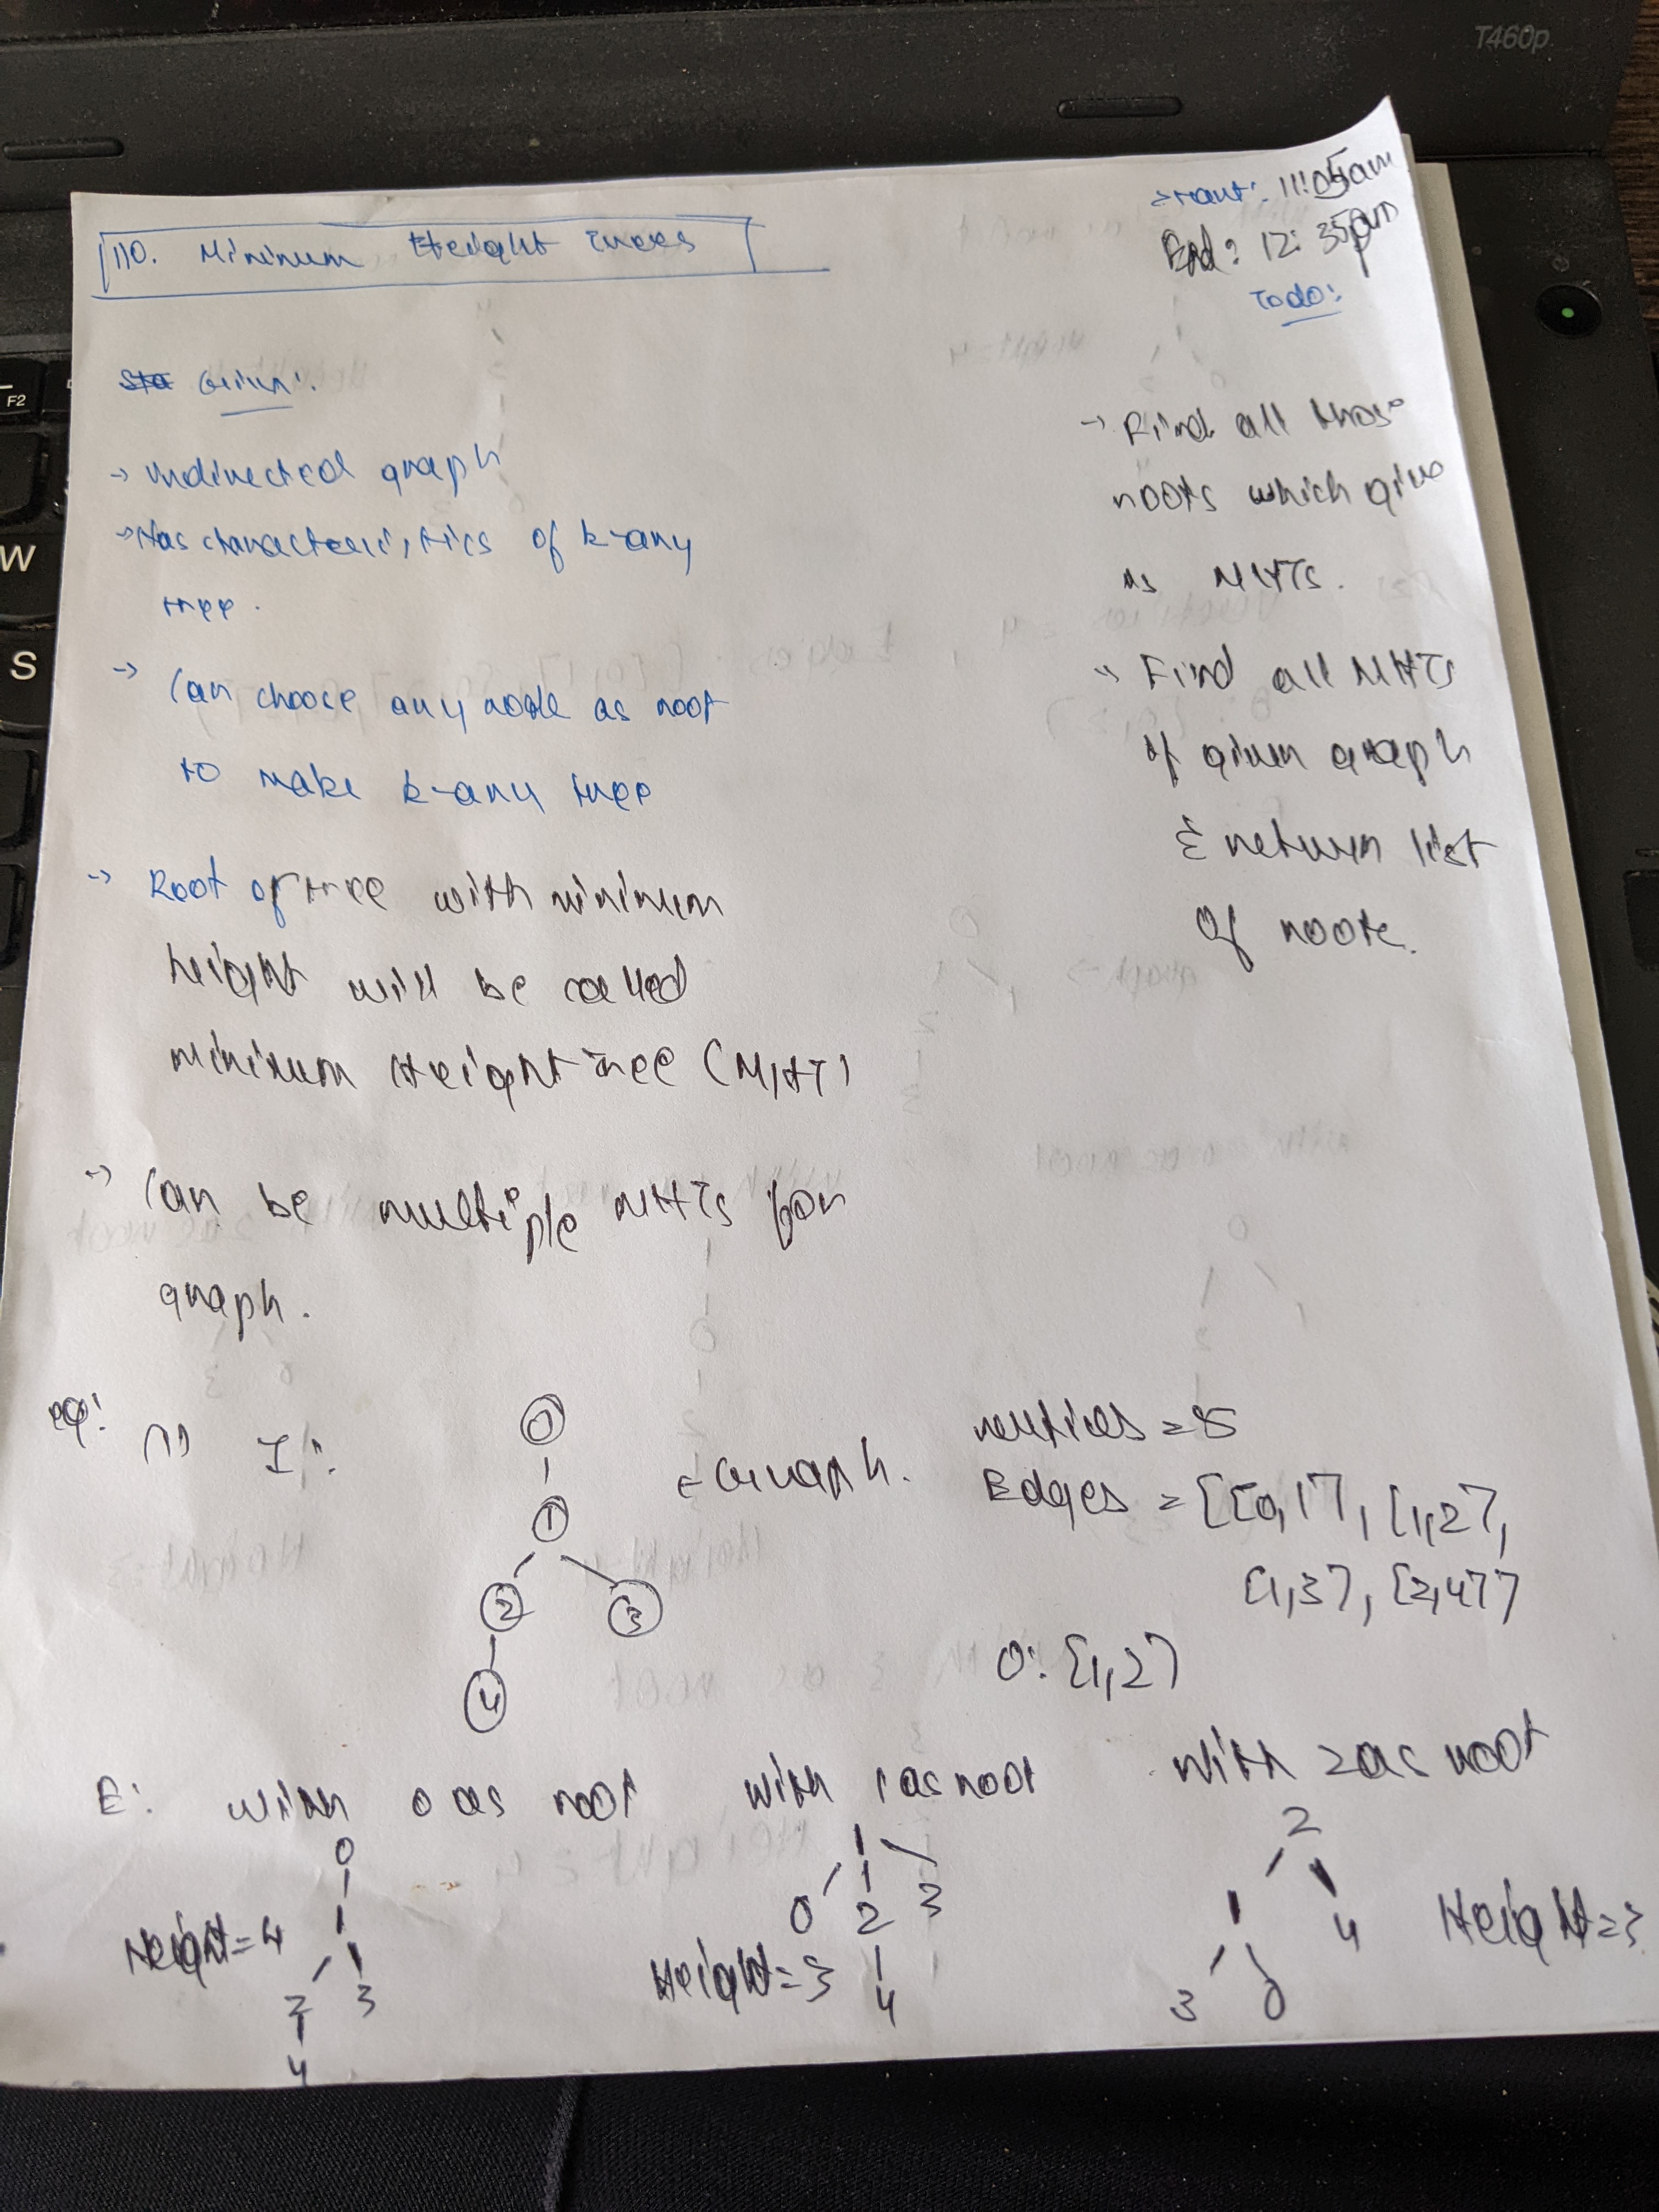 T460p
F2
W
S
Start: 11:05am
End: 12:35pm
110. Minimum Height Trees
Todo:
Given:
-> Undirected graph
-> Has characteristics of k-ary
tree.
-> Can choose any node as root
to make k-ary tree
-> Root of tree with minimum
height will be called
Minimum Height Tree (MHT)
-> Can be multiple MHTs for
graph.
-> Find all those
roots which give
us MHTs.
-> Find all MHTs
of given graph
& return list
of roots.
eg:
1) I:
0
1
2 3
4
← Graph.
vertices = 5
Edges = [[0,1], [1,2],
[1,3], [2,4]]
O: [1,2]
E: with 0 as root
0
1
2 3
4
Height=4
with 1 as root
1
0 2 3
4
Height=3
with 2 as root
2
1 4
3 0
Height=3